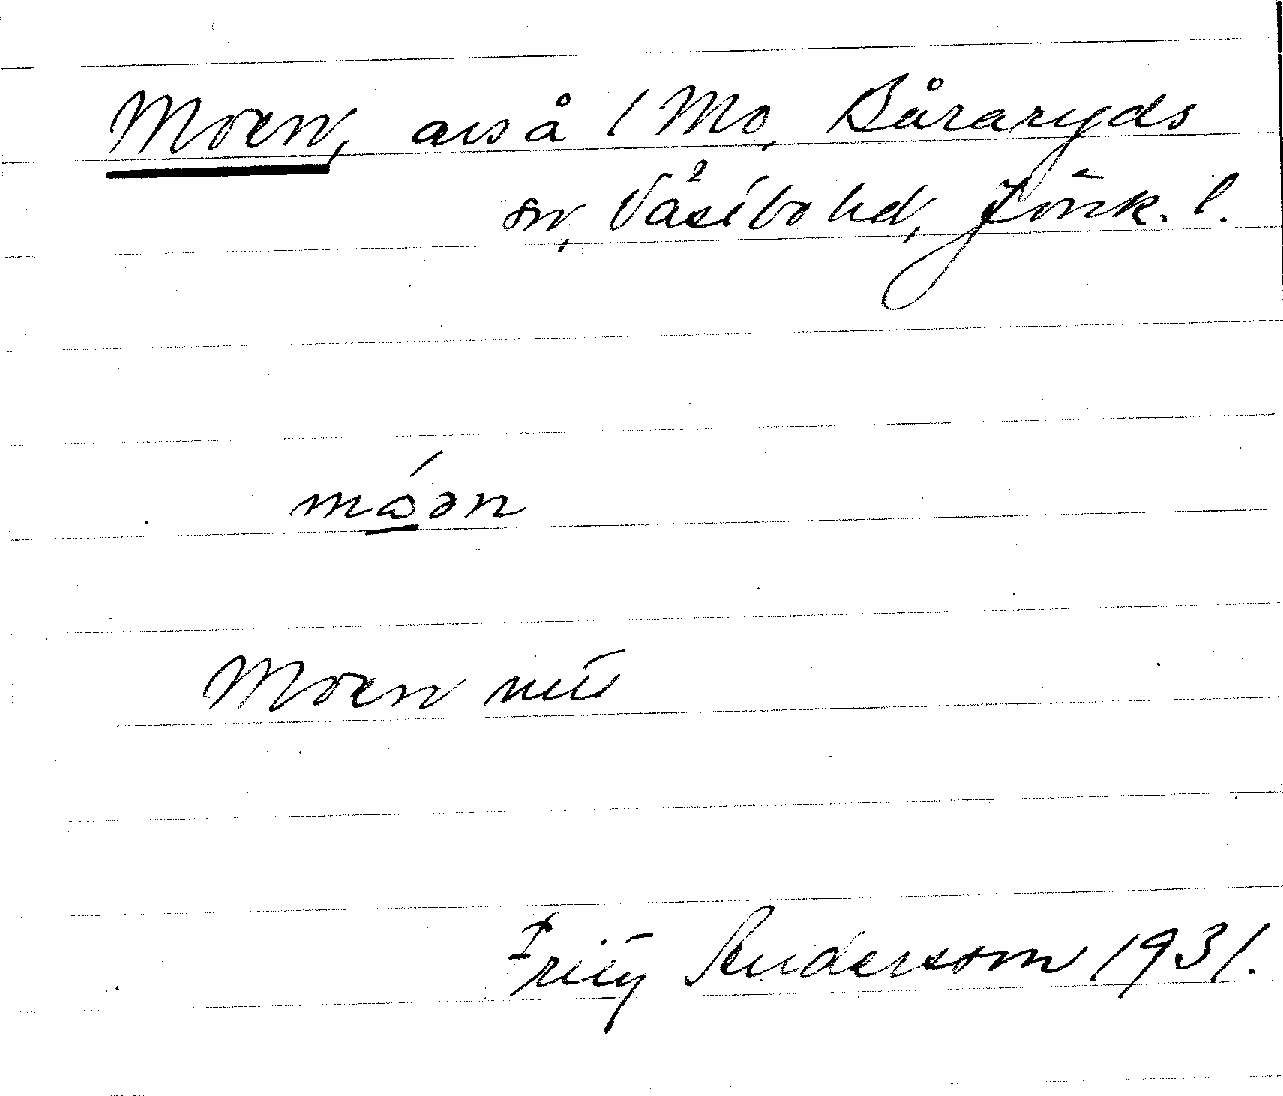 Moen, avs å 1 Mo, Båraryds
sn, Västbo hd, Jönk. l.
móən
Moen
Fritz Anderson 1931.